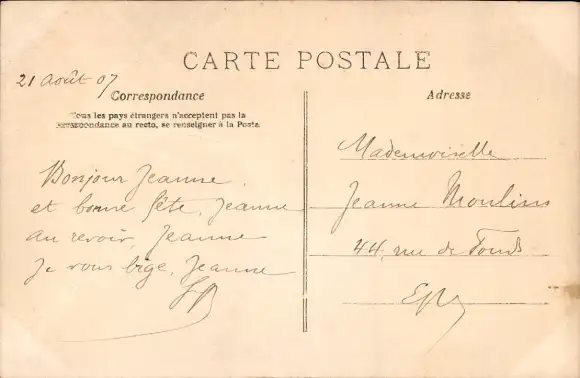 CARTE POSTALE
21 Août 07
Correspondance
Tous les pays étrangers n'acceptent pas la
correspondance au recto, se renseigner à la Poste.
Bonjour Jeanne,
et bonne fête, Jeanne
au revoir, Jeanne
Je vous bige, Jeanne
Adresse
Mademoiselle
Jeanne Moulins
44, rue de